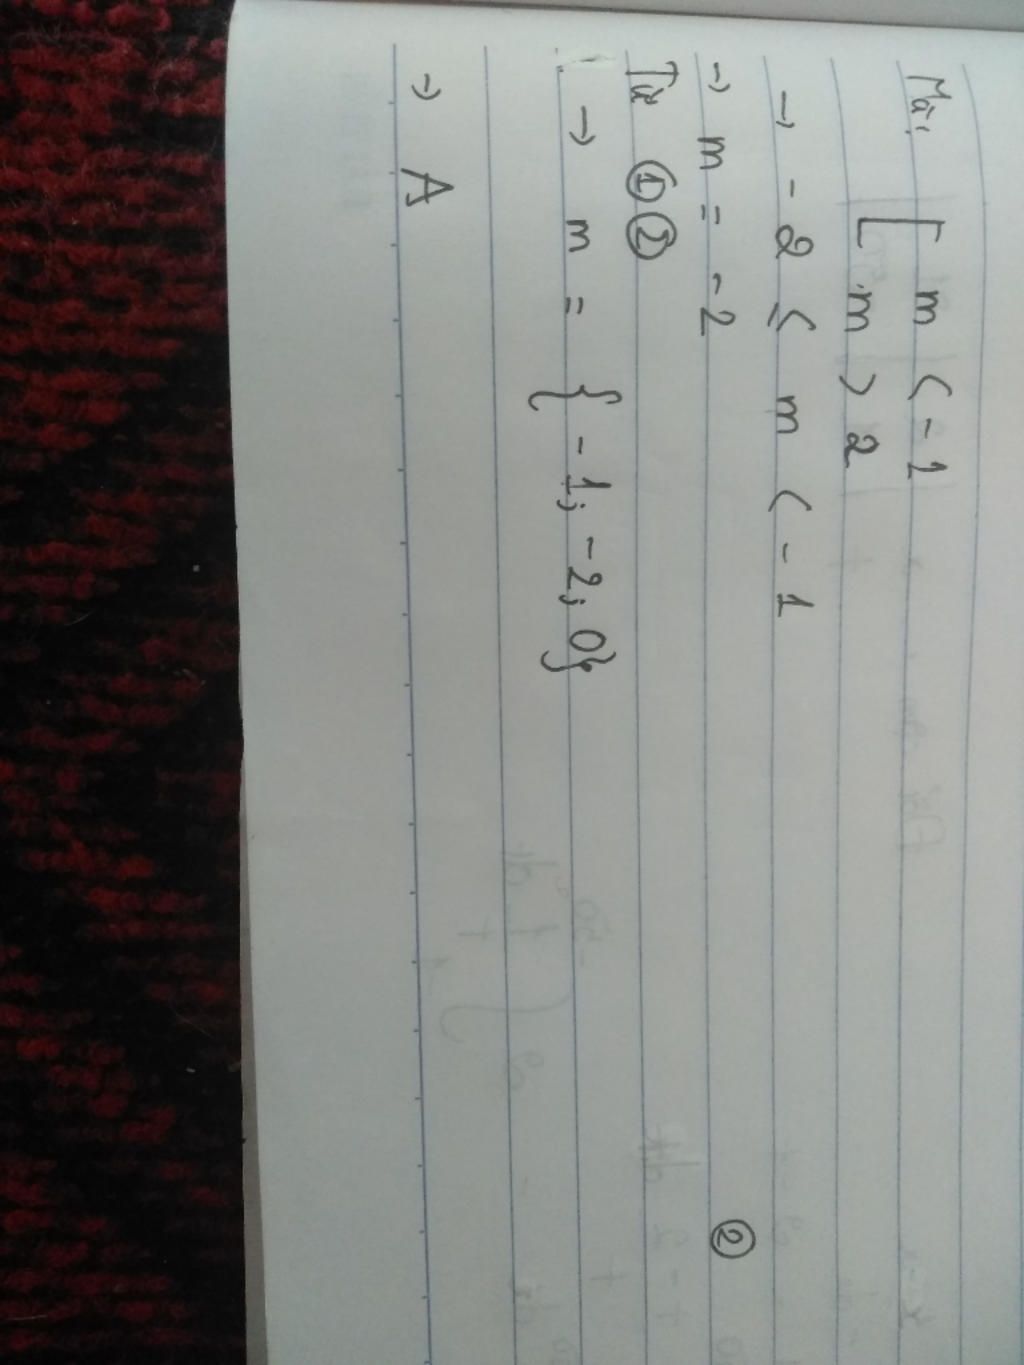 Mà: [ m < -1
m > 2
→ -2 ≤ m < -1
→ m = -2 ②
Từ ① ②
→ m = { -1; -2; 0}
→ A